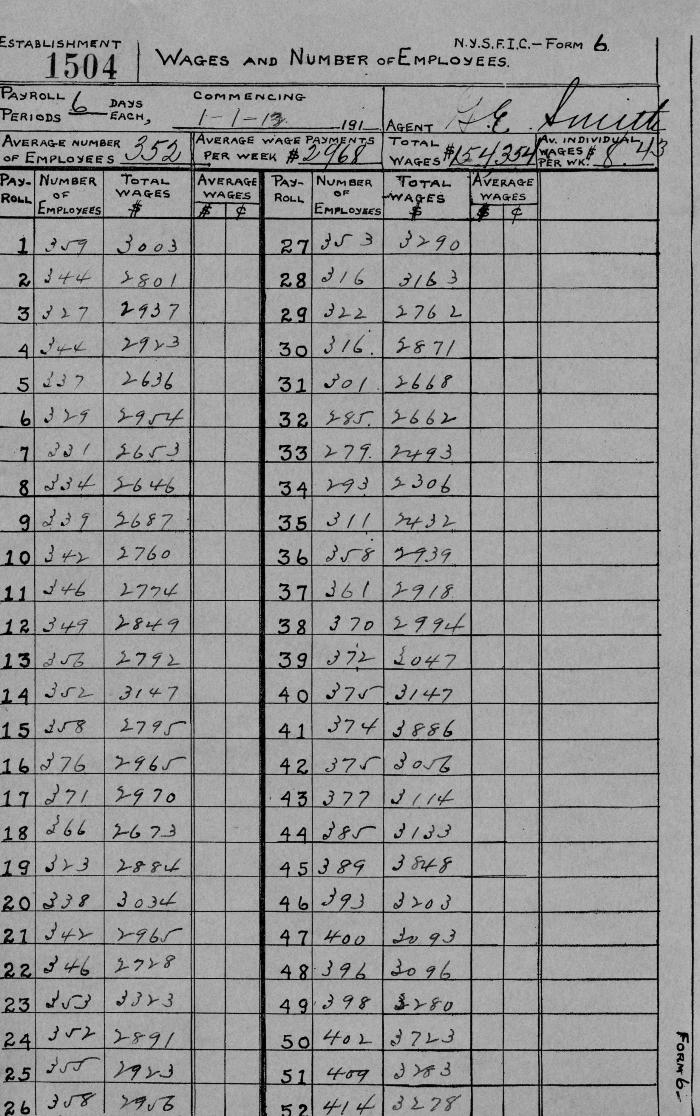 ESTABLISHMENT 1504 WAGES AND NUMBER OF EMPLOYEES. N.Y.S.F.I.C.- FORM 6.
PAYROLL PERIODS 6 DAYS EACH, COMMENCING 1-1-13 191 AGENT G.E. Smith
AVERAGE NUMBER OF EMPLOYEES 352 AVERAGE WAGE PAYMENTS PER WEEK $ 2968 TOTAL WAGES $154354 AV. INDIVIDUAL WAGES $ PER WK. 8.43
PAY-ROLL NUMBER OF EMPLOYEES TOTAL WAGES $ AVERAGE WAGES $ ¢ PAY-ROLL NUMBER OF EMPLOYEES TOTAL WAGES $ AVERAGE WAGES $ ¢
1 359 3003 27 353 3290
2 344 2801 28 316 3163
3 327 2937 29 322 2762
4 344 2923 30 316. 2871
5 337 2636 31 301. 2668
6 329 2954 32 285. 2662
7 331 2653 33 279. 2493
8 334 2646 34 293 2306
9 339 2687 35 311 2432
10 342 2760 36 358 2939
11 346 2774 37 361 2918
12 349 2849 38 370 2994
13 356 2792 39 372 3047
14 352 3147 40 375 3147
15 358 2795 41 374 3886
16 376 2965 42 375 3056
17 371 2970 43 377 3114
18 366 2673 44 385 3133
19 323 2884 45 389 3848
20 338 3034 46 393 3203
21 342 2965 47 400 3093
22 346 2728 48 396 3096
23 353 3323 49 398 3280
24 352 2891 50 402 3723
25 355 2923 51 409 3283
26 358 2956 52 414 3278
FORM 6-